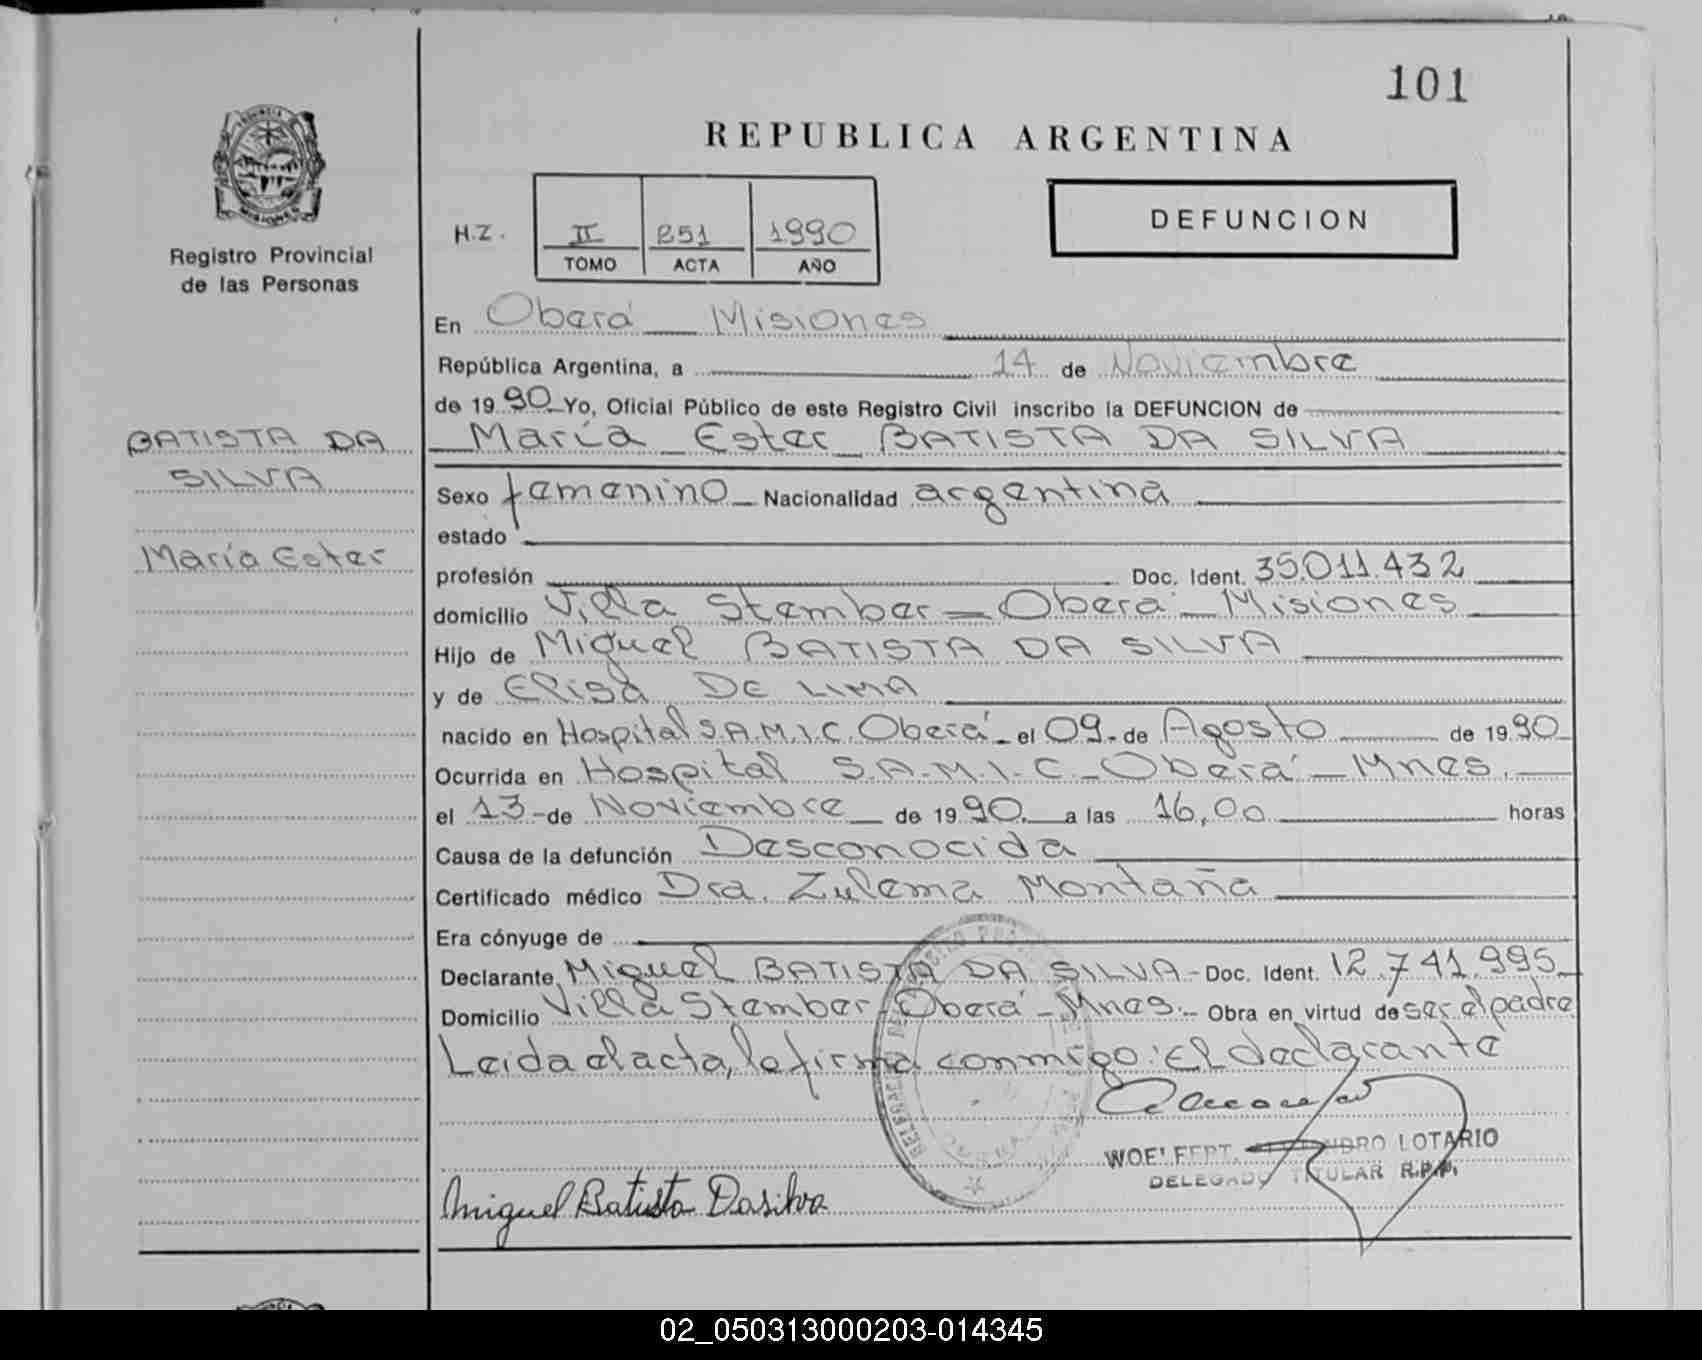 101
REPUBLICA ARGENTINA
DEFUNCION
H.Z.
II 251 1990
TOMO ACTA AÑO
Registro Provincial
de las Personas
BATISTA DA
SILVA
María Ester
En Oberá Misiones
República Argentina, a 14 de Noviembre
de 1990 Yo, Oficial Público de este Registro Civil inscribo la DEFUNCION de
María Ester BATISTA DA SILVA
Sexo femenino Nacionalidad argentina
estado
profesión Doc. Ident. 35.011.432
domicilio Villa Stember - Oberá - Misiones
Hijo de Miguel BATISTA DA SILVA
y de Elisa DE LIMA
nacido en Hospital S.A.M.I.C. Oberá - el 09 - de Agosto de 1990
Ocurrida en Hospital S.A.M.I.C - Oberá - Mnes.
el 13 - de Noviembre de 1990. a las 16,00 horas
Causa de la defunción Desconocida
Certificado médico Dra. Zulema Montaña
Era cónyuge de
Declarante Miguel BATISTA DA SILVA - Doc. Ident. 12.741.995
Domicilio Villa Stember - Oberá - Mnes. - Obra en virtud de ser el padre
Leida el acta, la firma conmigo: El declarante
LOTARIO
DELEGADO TITULAR R.P.P.
Miguel Batista Dasilva
02_050313000203-014345